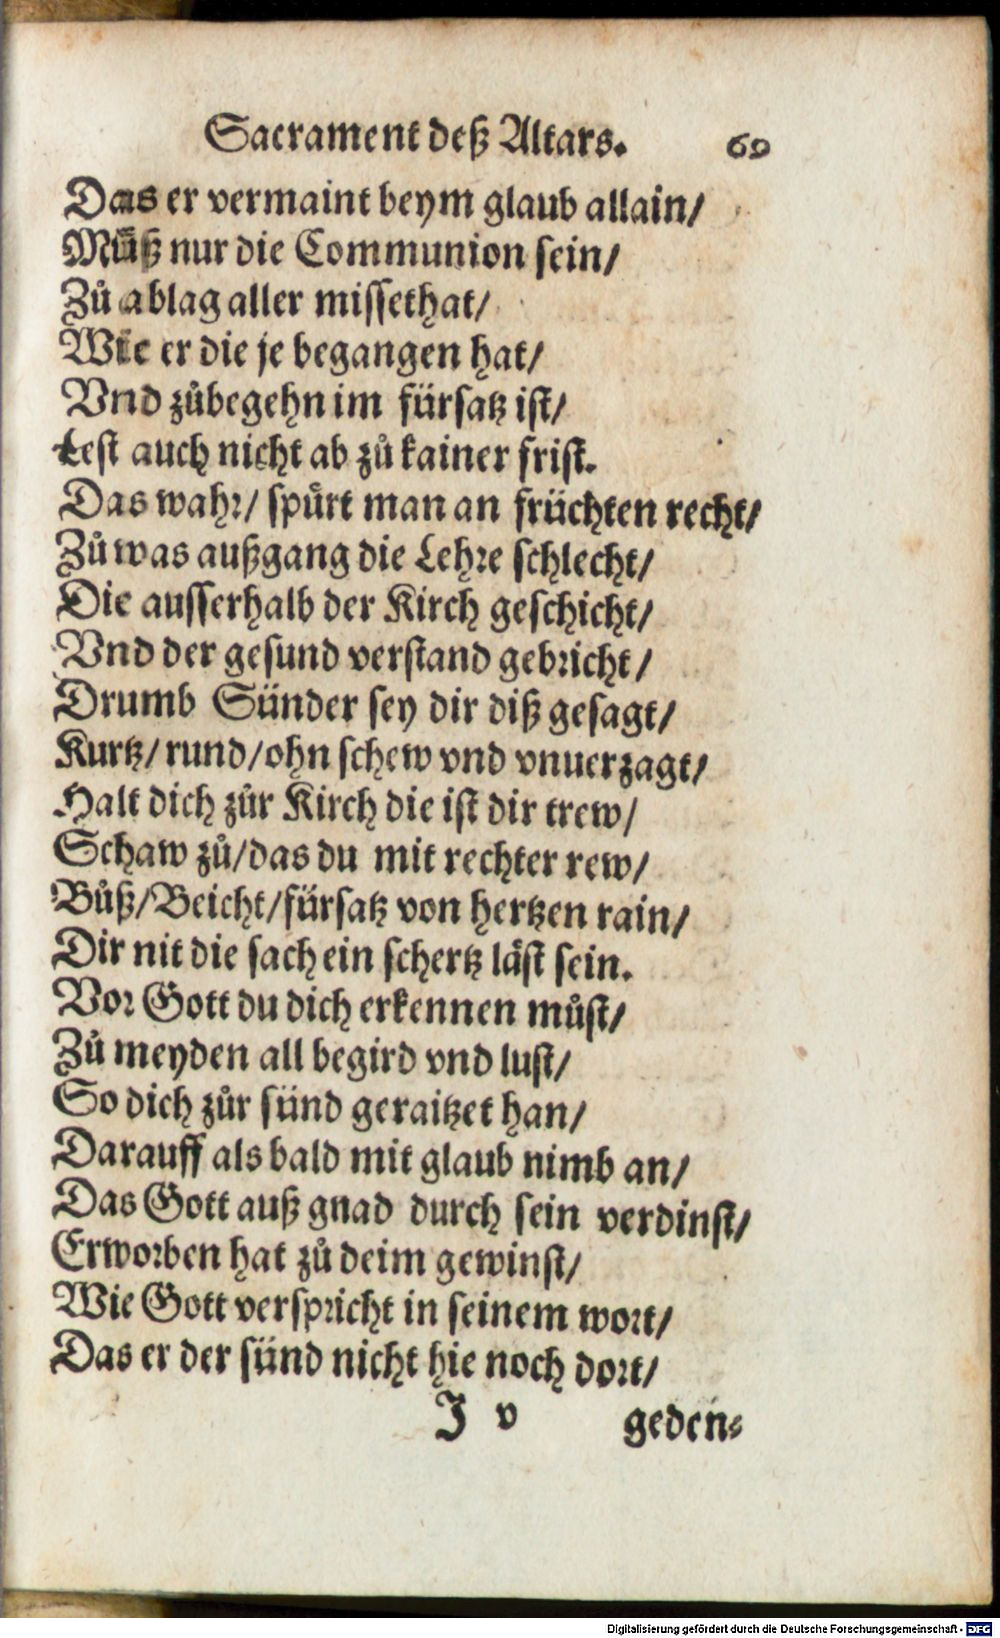 Sacrament deß Altars. 69
Das er vermaint beym glaub allain/
Můß nur die Communion sein/
Zů ablag aller missethat/
Wie er die je begangen hat/
Vnd zůbegehn im fürsatz ist/
Lest auch nicht ab zů kainer frist.
Das wahr/ spůrt man an früchten recht/
Zů was außgang die Lehre schlecht/
Die ausserhalb der Kirch geschicht/
Vnd der gesund verstand gebricht/
Drumb Sünder sey dir diß gesagt/
Kurtz/ rund/ ohn schew vnd vnuerzagt/
Halt dich zůr Kirch die ist dir trew/
Schaw zů/ das du mit rechter rew/
Bůß/ Beicht/ fürsatz von hertzen rain/
Dir nit die sach ein schertz låst sein.
Vor Gott du dich erkennen můst/
Zů meyden all begird vnd lust/
So dich zůr sünd geraitzet han/
Darauff als bald mit glaub nimb an/
Das Gott auß gnad durch sein verdinst/
Erworben hat zů deim gewinst/
Wie Gott verspricht in seinem wort/
Das er der sünd nicht hie noch dort/
J v geden-
Digitalisierung gefördert durch die Deutsche Forschungsgemeinschaft - DFG